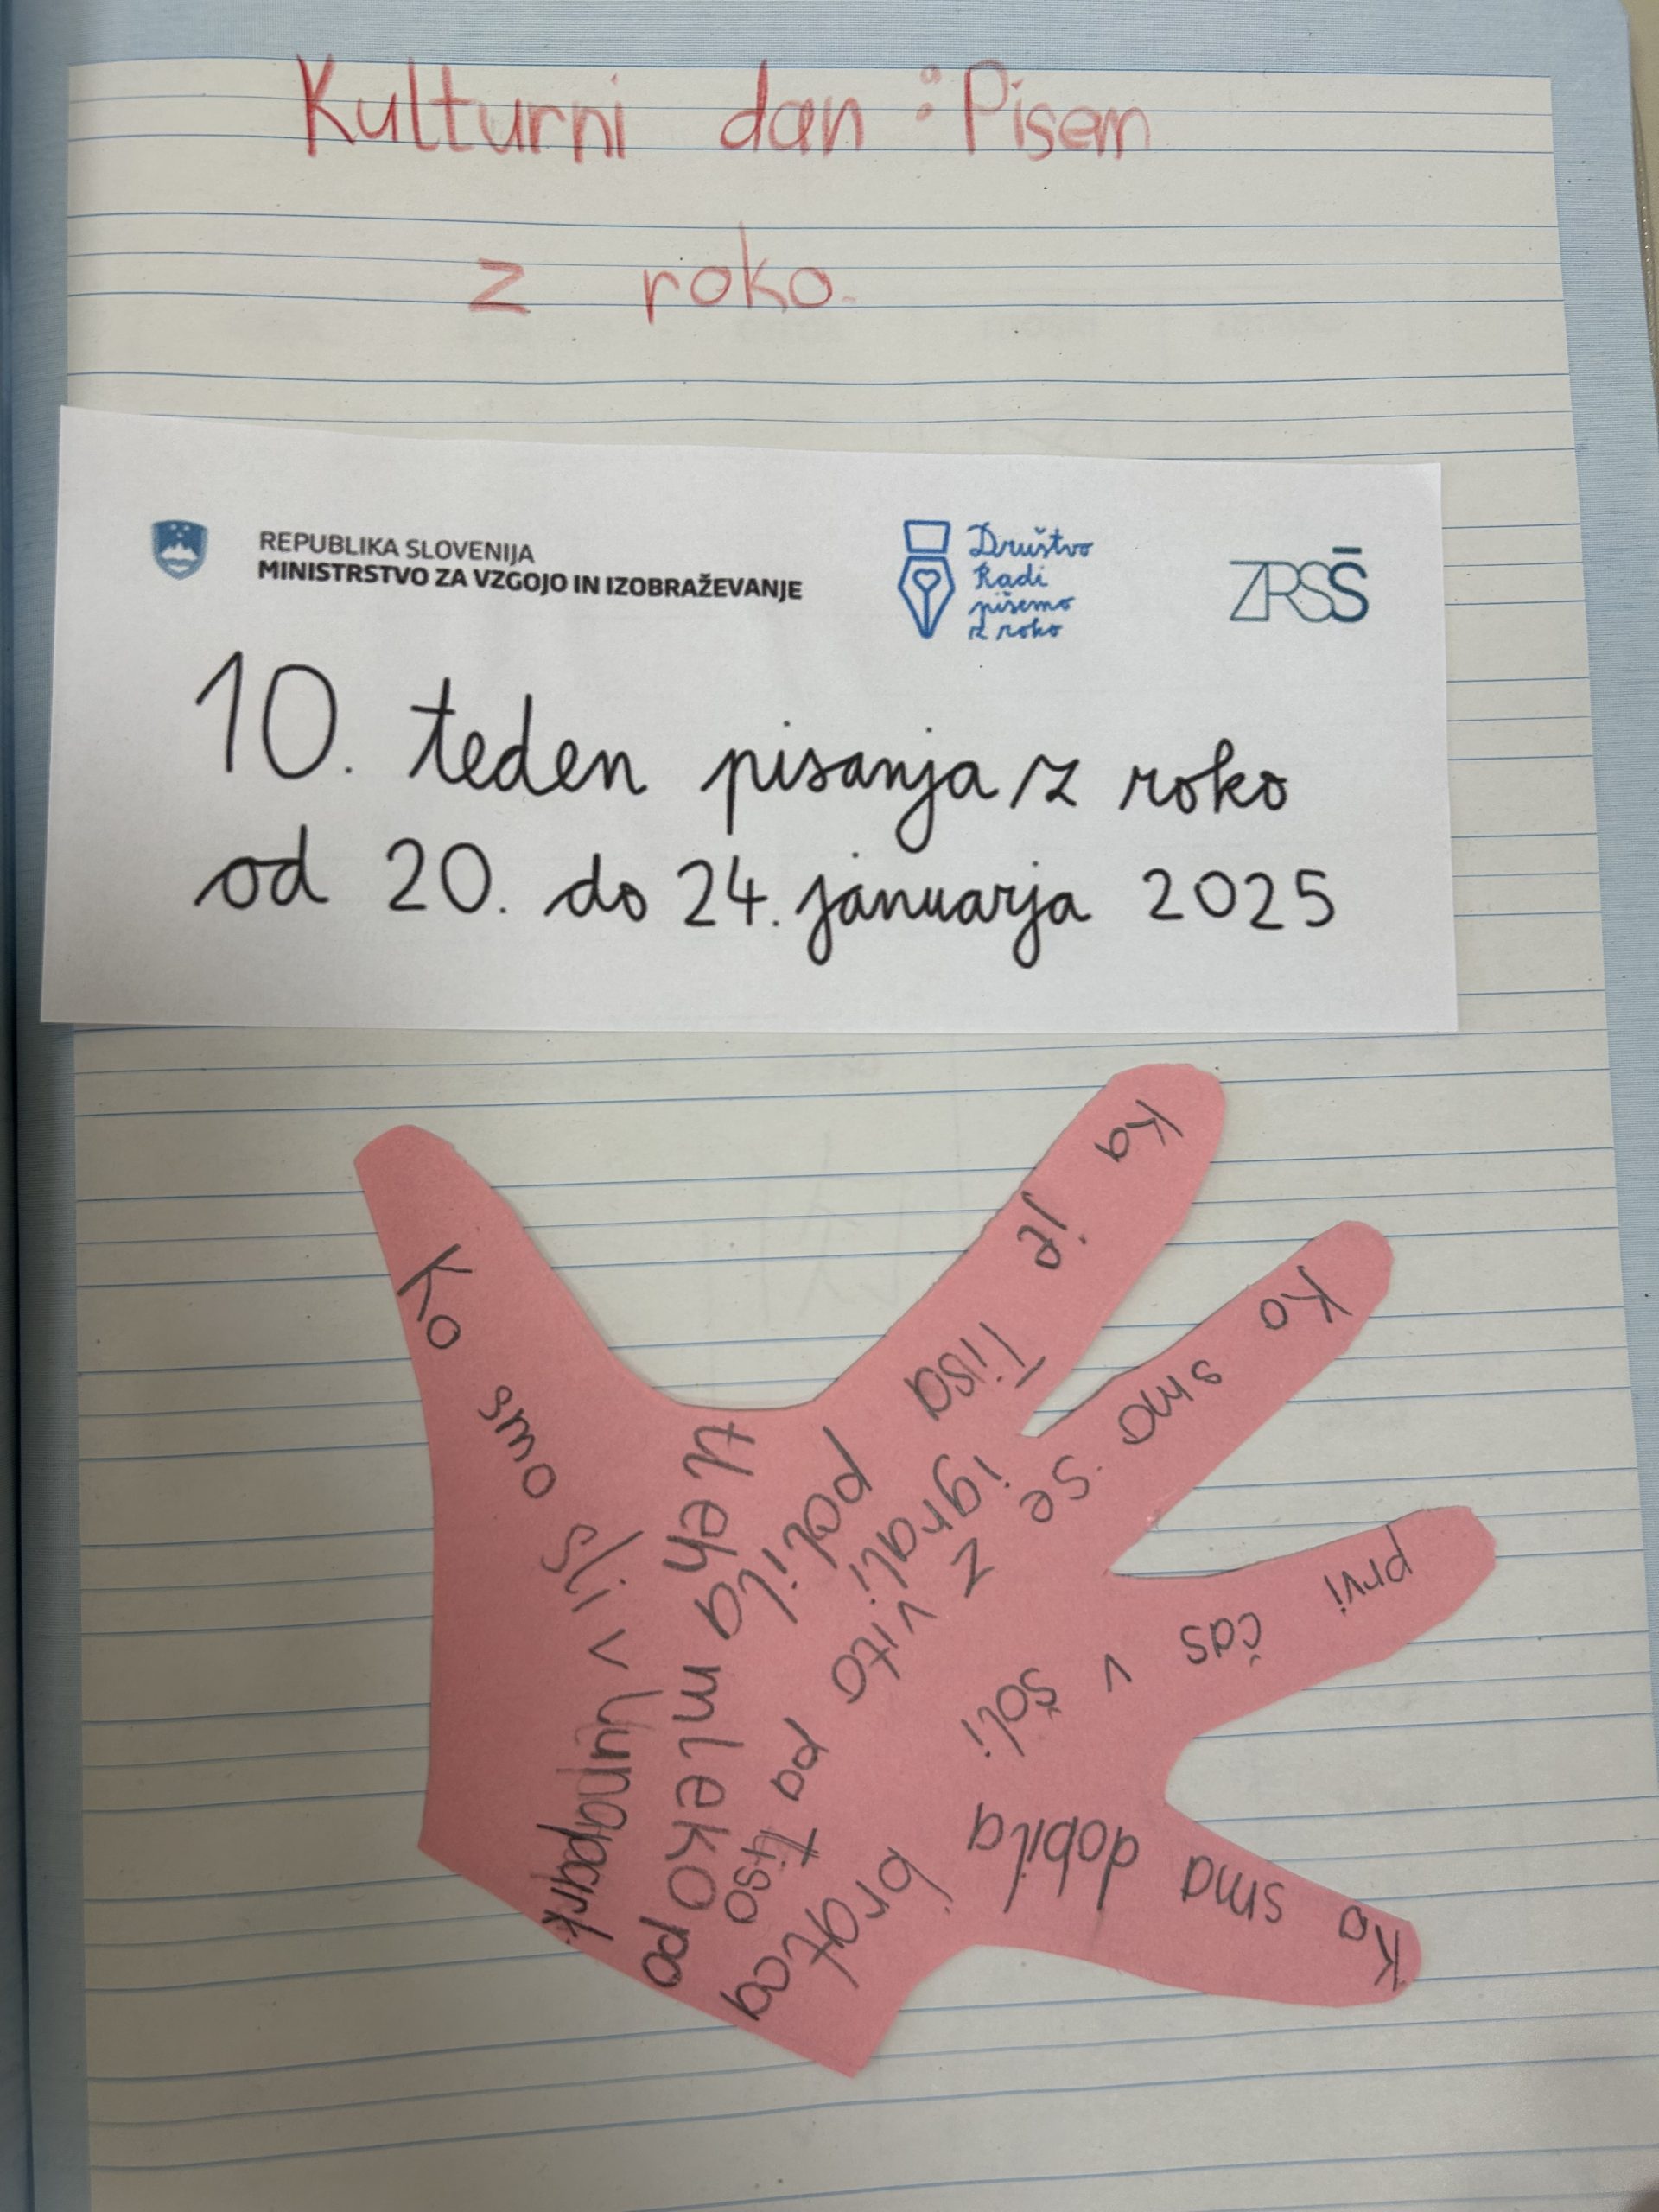 Kulturni dan : Pisem
z roko.
REPUBLIKA SLOVENIJA
MINISTRSTVO ZA VZGOJO IN IZOBRAŽEVANJE
Društvo
Radi
pišemo
z roko
ZRSŠ
10. teden pisanja z roko
od 20. do 24. januarja 2025
Ko smo sli v lunapark
Ka je Tisa polila mleko po tleh
Ko smo se igrali z vito pa tiso
prvi čas v šoli
Ko sma dobila